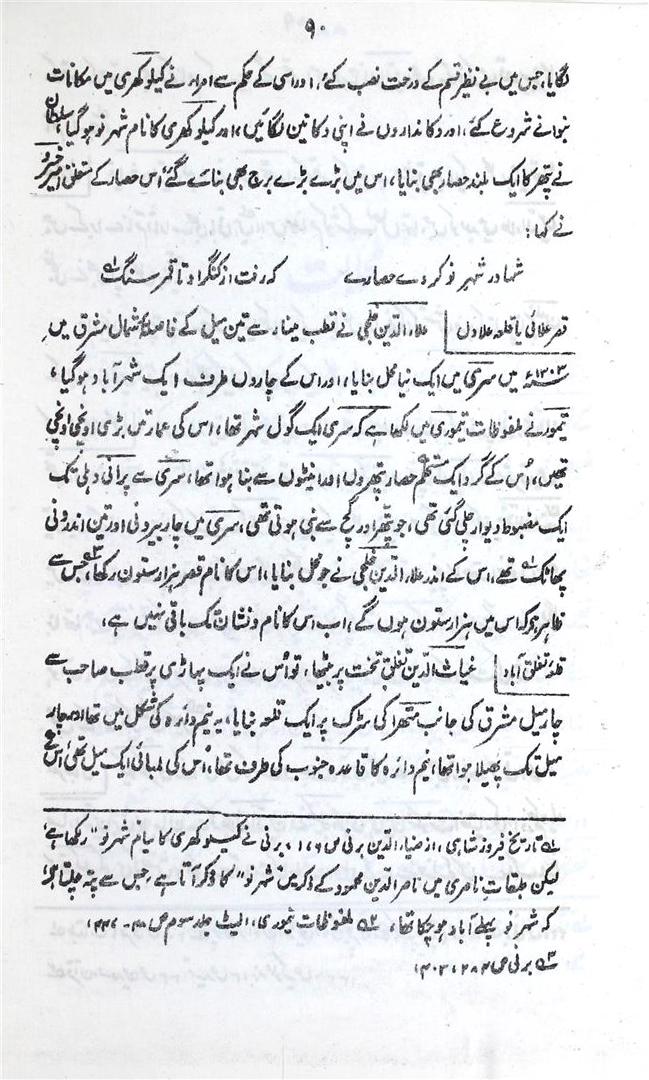 ۹۰
لگایا، جس میں بے نظیر قسم کے درخت نصب کئے، اور اسی کے حکم سے امراء نے کیلوکھری میں مکانات
بنوانے شروع کئے، اور دکانداروں نے اپنی دکانیں لگائیں، اور کیلوکھری کا نام شہر نو ہوگیا، سلطان
نے پتھر کا ایک بلند حصار بھی بنایا، اس میں بڑے بڑے برج بھی بنائے گئے، اس حصار کے متعلق امیر خسرو
نے کہا:
شہا در شہر نو کر دے حصارے کہ رفت از کنگراو تا قمر سنگ ؎۱
قصر علائی یا قلعہ علاول علاء الدین خلجی نے قطب مینار سے تین میل کے فاصلہ پر شمال مشرق میں
۱۳۰۳ء میں سری میں ایک نیا محل بنایا، اور اس کے چاروں طرف ایک شہر آباد ہوگیا،
تیمور نے ملفوظات تیموری میں لکھا ہے کہ سری ایک گول شہر تھا، اس کی عمارتیں بڑی اونچی اونچی
تھیں، اُس کے گرد ایک مستحکم حصار پتھروں اور اینٹوں سے بنا ہوا تھا، سری سے پرانی دہلی تک
ایک مضبوط دیوار چلی گئی تھی، جو پتھر اور گچ سے بنی ہوتی تھی، سری میں چار بیرونی اور تین اندرونی
پھاٹک ؎۲ تھے، اس کے اندر علاء الدین خلجی نے جو محل بنایا، اس کا نام قصر ہزار ستون رکھا ؎۳، جس سے
ظاہر ہو کہ اس میں ہزار ستون ہوں گے، اب اس کا نام و نشان تک باقی نہیں ہے،
قلعۂ تغلق آباد غیاث الدین تغلق تخت پر بیٹھا، تو اُس نے ایک پہاڑی پر قطب صاحب سے
چار میل مشرق کی جانب متھرا کی سڑک پر ایک قلعہ بنایا، یہ نیم دائرہ کی شکل میں تھا اور چار
میل تک پھیلا ہوا تھا، نیم دائرہ کا قاعدہ جنوب کی طرف تھا، اُس کی لمبائی ایک میل تھی، اس
؎۱ تاریخ فیروز شاہی، از ضیاء الدین برنی ص ۱۷۶، برنی نے کیلوکھری کا نام شہر نو" رکھا ہے،
لیکن طبقاتِ ناصری میں ناصر الدین محمود کے ذکر میں شہر نو" کا ذکر آتا ہے، جس سے پتہ چلتا ہے
کہ شہر نو پہلے آباد ہوچکا تھا، ؎۲ ملفوظات تیموری، الیٹ جلد سوم ص
؎۳ برنی ص